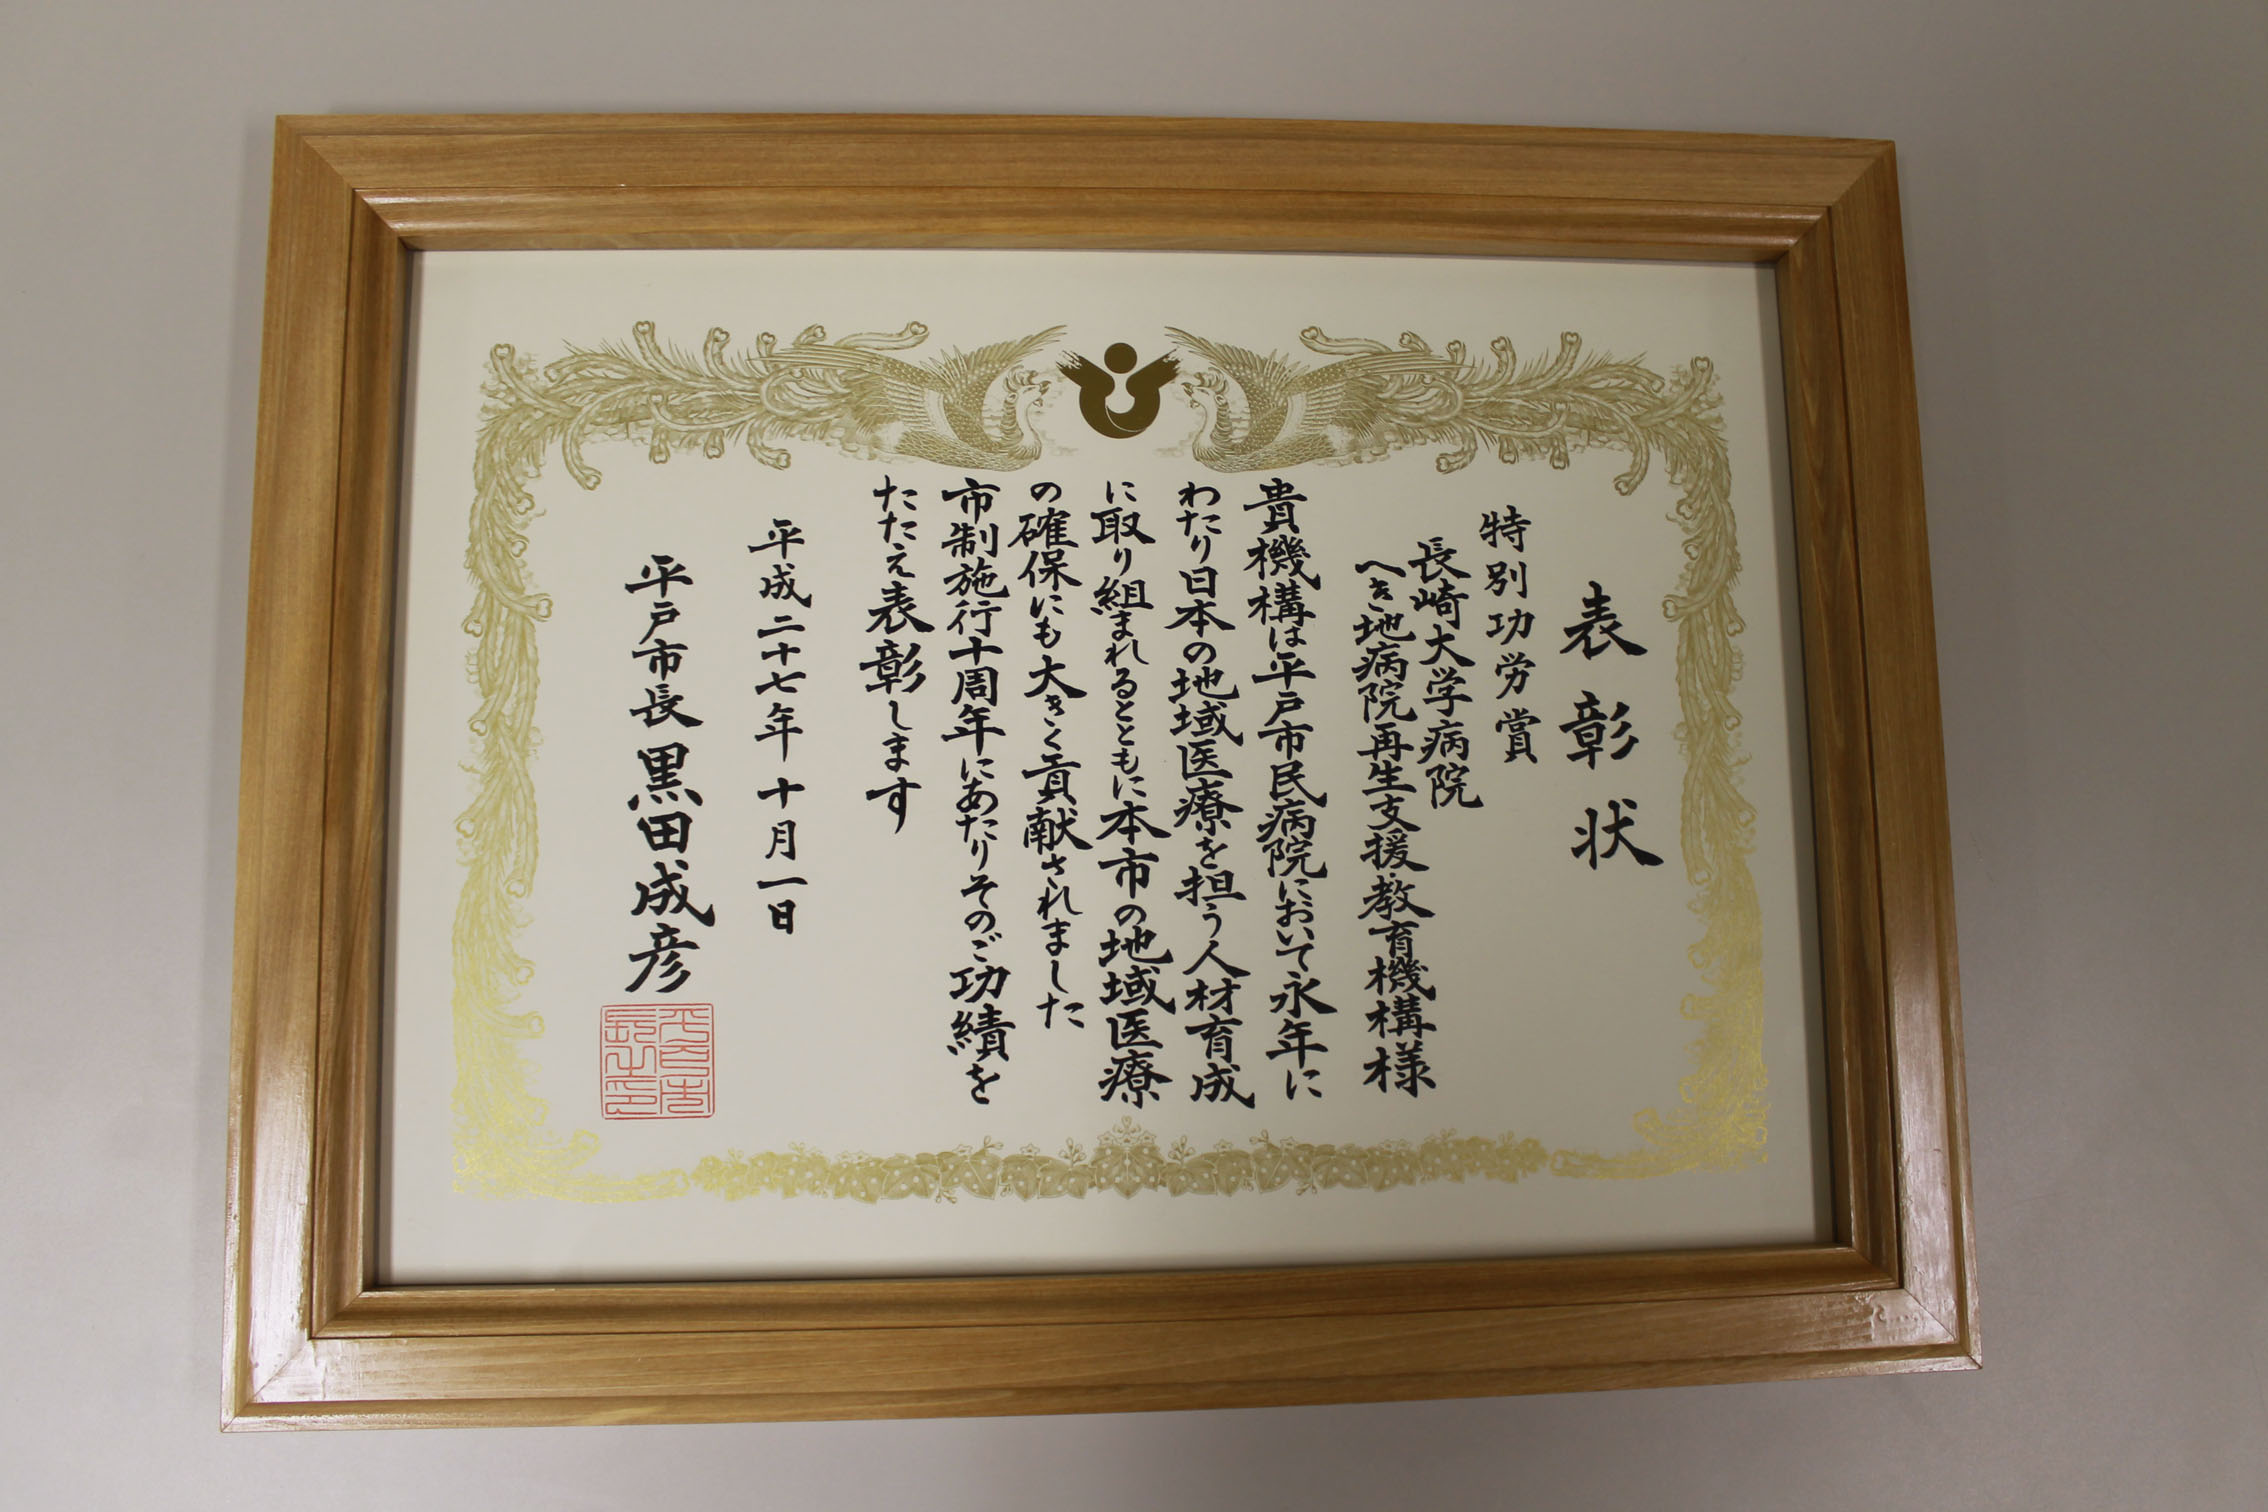 表彰状
特別功労賞
長崎大学病院
へき地病院再生支援・教育機構様
貴機構は平戸市民病院において永年に
わたり日本の地域医療を担う人材育成
に取り組まれるとともに本市の地域医療
の確保にも大きく貢献されました
市制施行十周年にあたりそのご功績を
たたえ表彰します
平成二十七年十月一日
平戸市長 黒田成彦
平戸市長之印